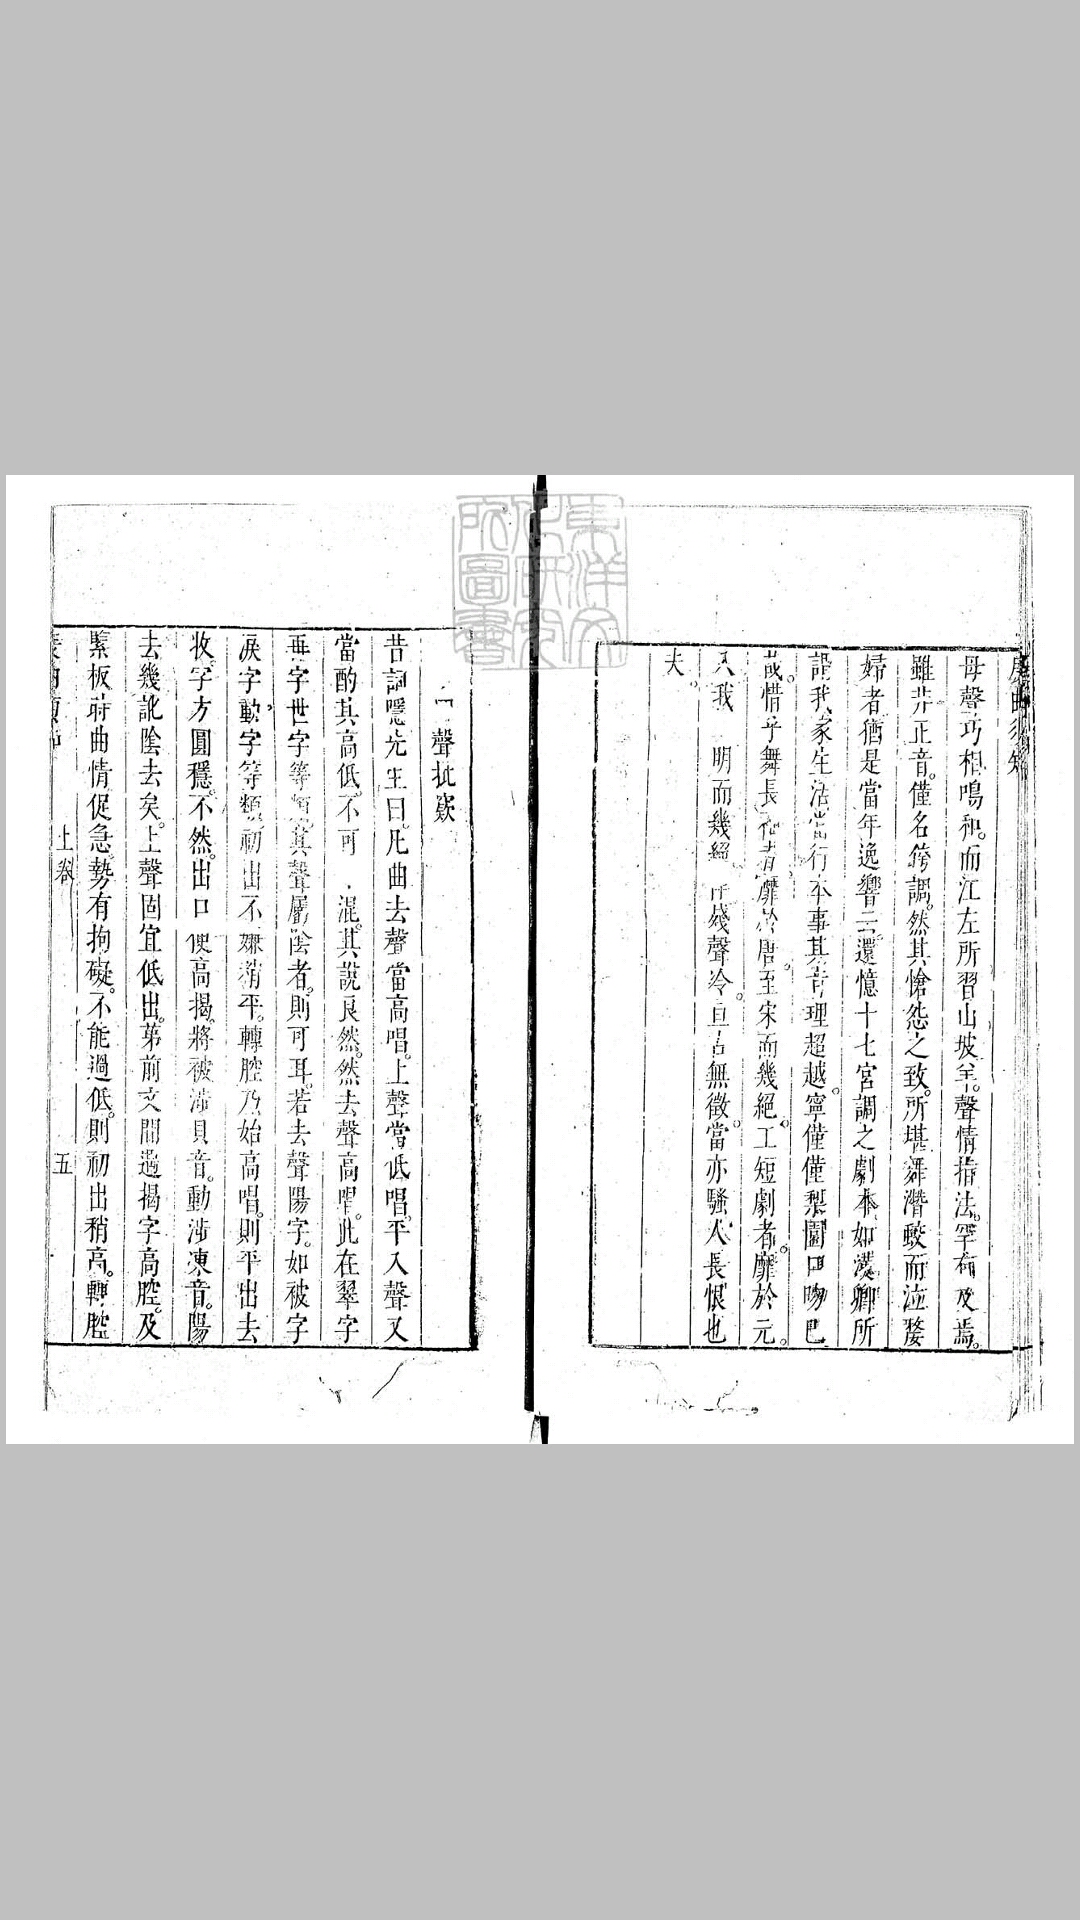 度曲須知
母聲巧相鳴和。而江左所習山坡羊。聲情指法。罕有及焉。
雖非正音。僅名侉調。然其愴怨之致。所堪舞潛蛟而泣嫠
婦者。猶是當年逸響云。還憶十七宮調之劇本。如漢卿所
謂我家生活。當行本事。其音理超越。寧僅僅梨園口吻已
哉。惜乎舞長袖者。靡於唐。至宋而幾絕。工短劇者。靡於元。
入我 明而幾絕 殘聲冷。亘古無徵。當亦騷人長恨也
夫。
聲批窽
昔詞隱先生曰。凡曲去聲當高唱。上聲當低唱。平入聲又
當酌其高低。不可 混。其說良然。然去聲高唱。此在翠字
再字世字等類。其聲屬陰者。則可耳。若去聲陽字。如被字
淚字動字等類。初出不嫌稍平。轉腔乃始高唱。則平出去
收。字方圓穩。不然。出口便高揭。將被涉貝音。動涉凍音。陽
去幾訛陰去矣。上聲固宜低出。第前文間遇揭字高腔。及
緊板時曲情促急。勢有拘礙。不能過低。則初出稍高。轉腔
上卷
五